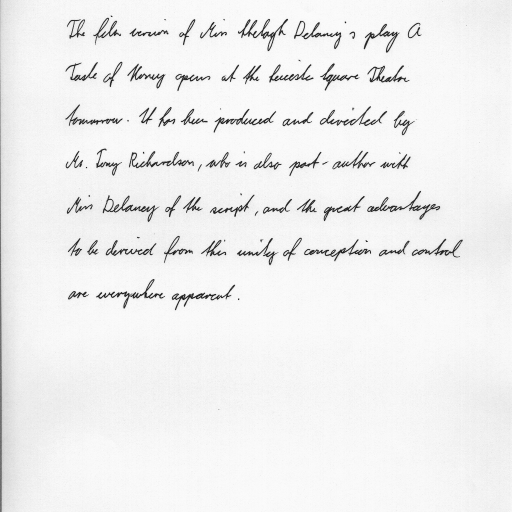 The film version of Miss Shelagh Delaney's play A
Taste of Honey opens at the Leicester Square Theatre
tomorrow. It has been produced and directed by
Mr. Tony Richardson, who is also part-author with
Miss Delaney of the script, and the great advantages
to be derived from this unity of conception and control
are everywhere apparent.